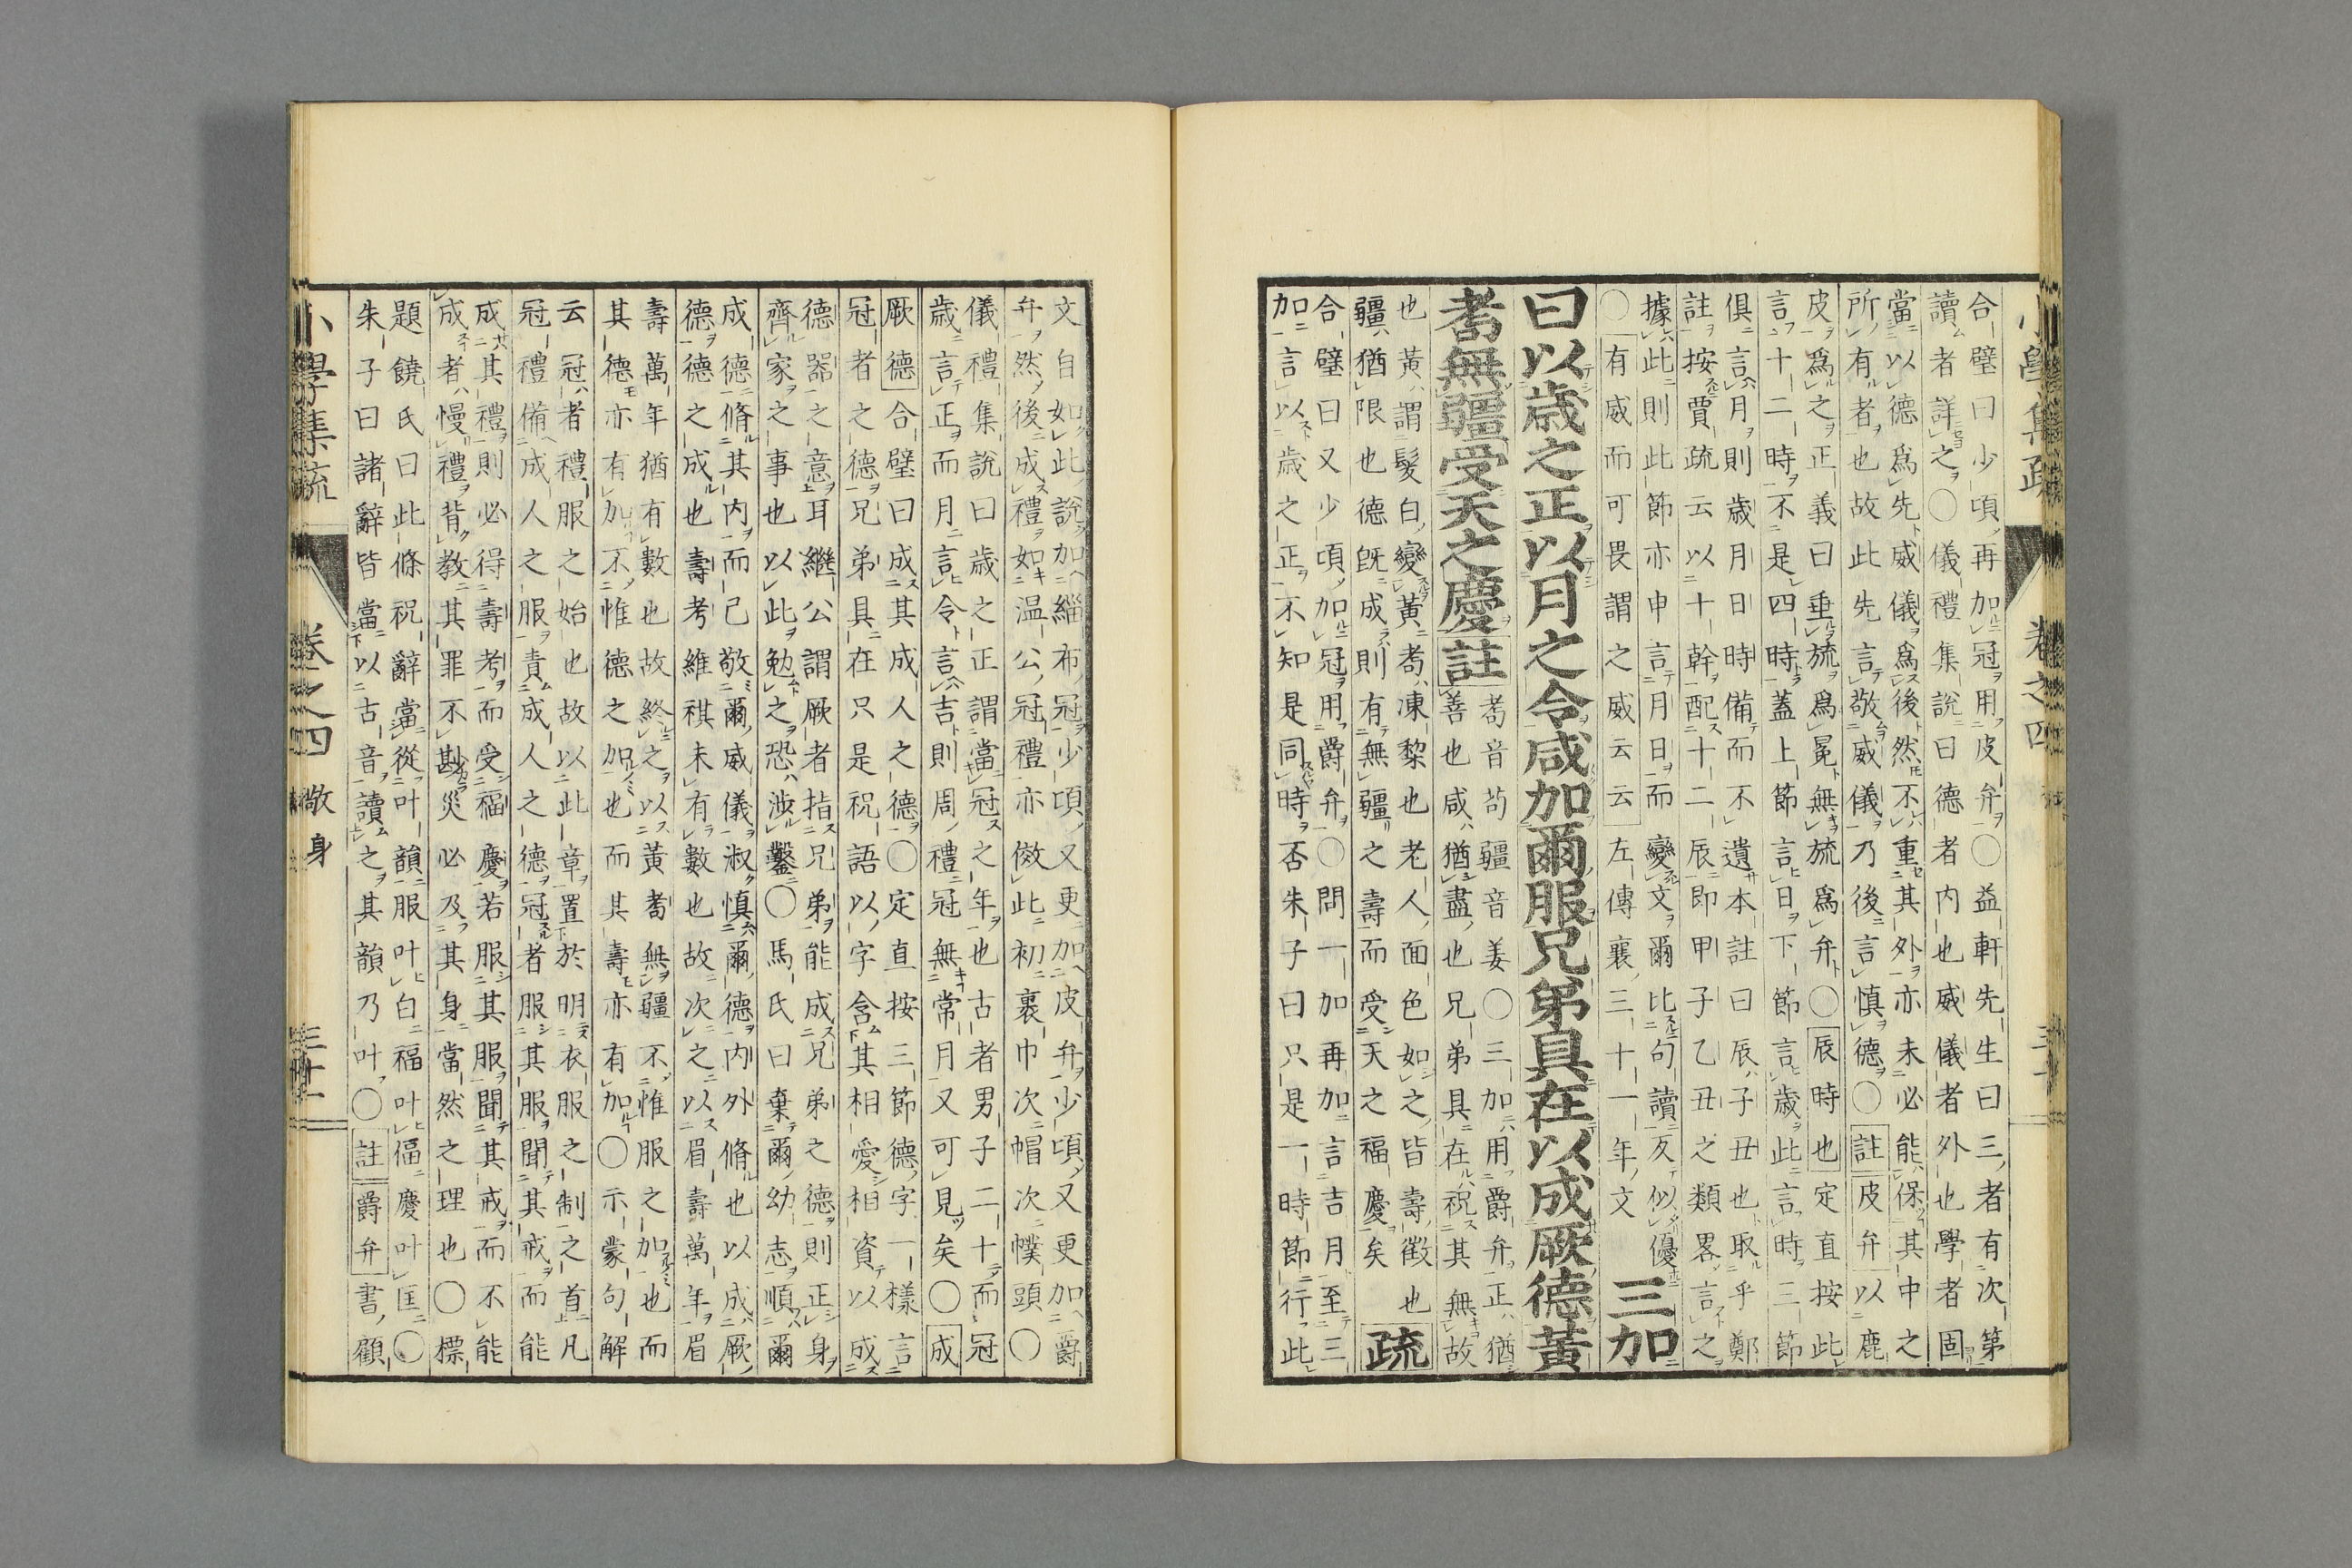 合璧曰少頃再加冠用皮弁○益軒先生曰三者有次第
讀者詳之○儀禮集說曰德者内也威儀者外也學者固
當以德爲先威儀爲後然不重其外亦未必能保其中之
所有者也故此先言敬威儀乃後言慎德○註皮弁以鹿
皮爲之正義曰垂旒爲冕無旒爲弁○辰時也定直按此
言十二時不是四時蓋上節言日下節言歲此言時三節
俱言月則歲月日時備而不遺本註曰辰子丑也取乎鄭
註按賈疏云以十幹配十二辰即甲子乙丑之類畧言之
據此則此節亦申言月日而變文爾比句讀反似優
○有威而可畏謂之威云云左傳襄三十一年文 三加
曰以歲之正以月之令咸加爾服兄弟具在以成厥德黃
耇無疆受天之慶註
耇音苟疆音姜○三加用爵弁正猶
善也咸猶盡也兄弟具在祝其無故
也黃謂髮白變黃耇凍黎也老人面色如之皆壽徵也
疆猶限也德既成則有無疆之壽而受天之福慶矣 疏
合璧曰又少頃加冠用爵弁○問一加再加言吉月至三
加言以歲之正不知是同時否朱子曰只是一時節行此
文自如此說加緇布冠少頃又更加皮弁少頃又更加爵
弁然後成禮如温公冠禮亦倣此初裹巾次帽次幞頭○
儀禮集說曰歲之正謂當冠之年也古者男子二十而冠
歲言正而月言令言吉則周禮冠無常月又可見矣○成
厥德合璧曰成其成人之德○定直按三節德字一樣言
冠者之德兄弟具在只是祝語以字含其相愛相資以成
德器之意耳繼公謂厥者指兄弟能成兄弟之德則正身
齊家之事也以此勉之恐涉鑿○馬氏曰棄爾幼志順爾
成德脩其内而已敬爾威儀淑慎爾德内外脩也以成厥
德德之成也壽考維祺未有數也故次之以眉壽萬年眉
壽萬年猶有數也故終之以黃耇無疆不惟服之加也而
其德亦有加不惟德之加也而其壽亦有加○示蒙句解
云冠者禮服之始也故以此章置於明衣服之制之首凡
冠禮備成人之服責成人之德冠者服其服聞其戒而能
成其禮則必得壽考而受福慶若服其服聞其戒而不能
成者慢禮背教其罪不尠災必及其身當然之理也○標
題饒氏曰此條祝辭當從叶韻服叶白福叶偪慶叶匡○
朱子曰諸辭皆當以古音讀之其韻乃叶○註爵弁書顧
小學集疏 卷之四 敬身 三十一